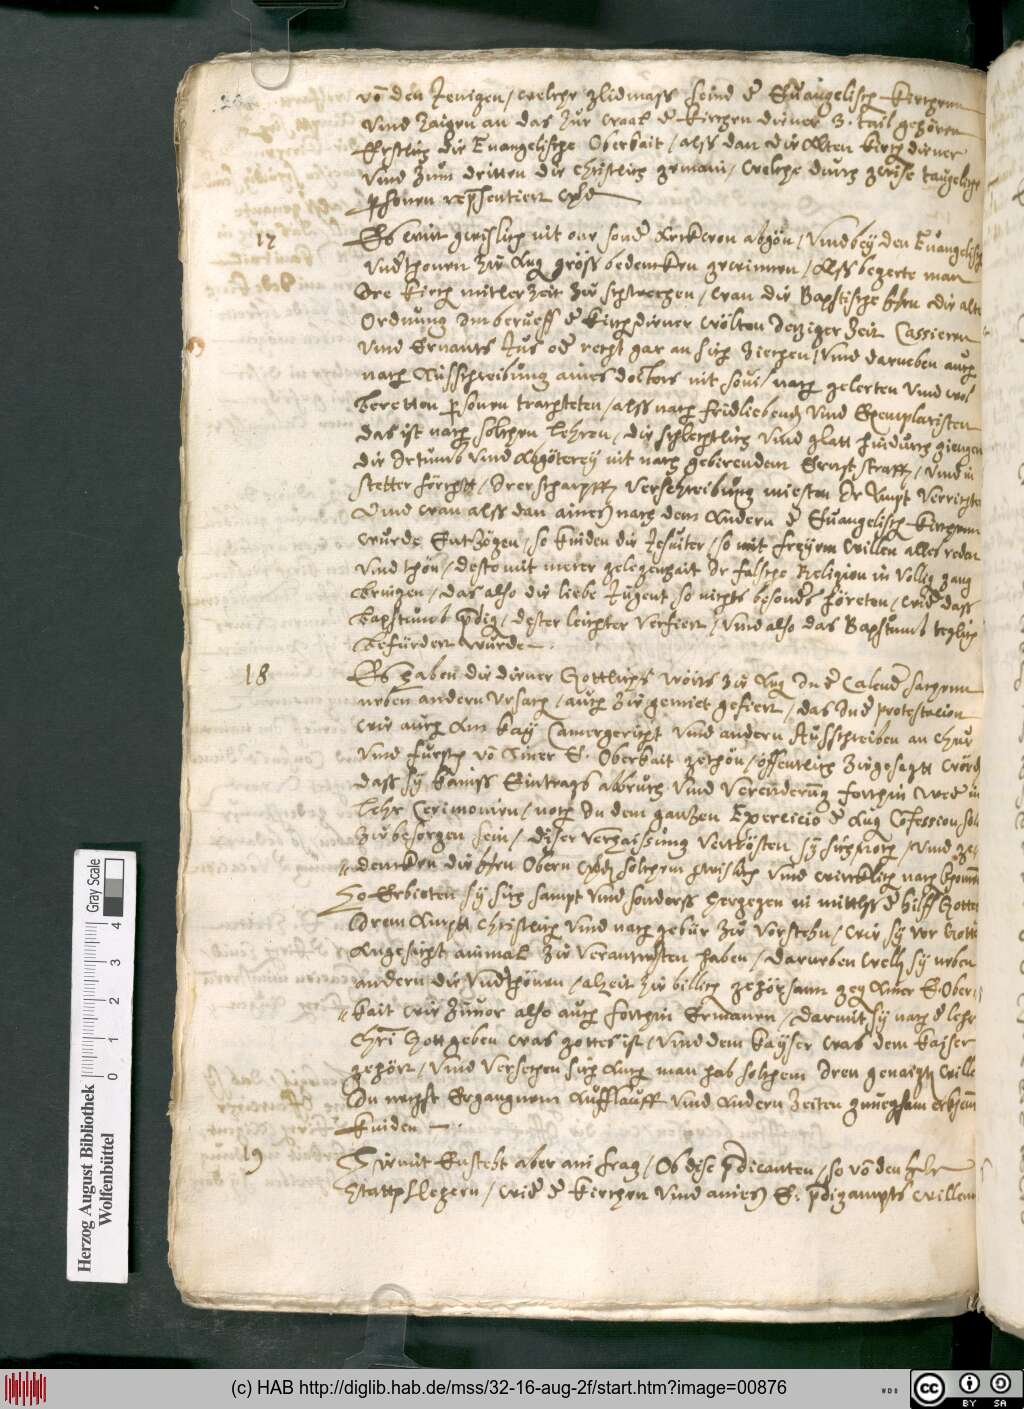 von den Jenigen / welche glidmass seind der Euangelisch Kirchenn
Vnnd zaigen an das zur wahl der Kirchen diener 3. tail gehören
Erstlich die Euangelische Oberkait / alss dan die Alten Kirch diener
Vnnd zum dritten die christlich gemain / welche durch gwise taugeliche
personen representiert wird
17
Es wirt gwislich nit one sonder Arckwon abgon / Vnnd bey den Euangelischen
Vnderthonen zu Aug gross bedencken gewinnen / Alss begerte man
Ire Kirch mitler zeit zu schwechen / wan die Bapstische hern die alte
Ordnung im berueff der Kirchdiener wolten Jetziger zeit Cassieren
Vnnd Senants Jus oder recht gar an sich ziechen / Vnnd darneben auch
nach Ausschreibung aines doctors nit souil nach gelerten Vnnd wol
beretten personen trachteten / alss nach fridliebend Vnnd Exemplaristen
das ist nach solchen lehren / die schlechtlich Vnnd glatt hindurch giengen
die Irtumb Vnnd Abgöterey nit nach gebirendem Ernst straff / Vnnd in
stetter forcht / Irer scharpffen Verschreibung miesten Ir Ampt Verrichten
Vnnd wan alss dan ainer nach dem Andern der Euangelisch Kirchenn
wurde Entzogen / so kinden die Jesuiter / so mit freyem willen alles reden
Vnnd thon / desto mit merer gelegenhait Ir falsche Religion in Vollig gang
bringen / das also die liebe Jugent so nichts besonders höreten / wider dass
Bapstumb predig / dester leichter Verfiert / Vnnd also das Bapstumb teglich
befürdert wurde
18
Es haben die diener Gottlichs worts zu Aug In der Calender sachenn
neben andern Vrsach / auch zu gemiet gefiert / das In der protestation
wie auch Am Kay Camergericht Vnnd andern Ausschreiben an Chur
Vnnd Fursten von Ainer E. Oberkait gethon / offentlich zugesagt word
dass sy kainss Eintrags abbruch Vnnd Verenderung forthin weder in
lehr Cerimonien / noch In dem gantzen Exercicio der Aug Confession solt
zu besorgen sein / diser Verhaissung Vertrösten sy sich noch / Vnnd ge-
dencken die hern Obern werd solchem gwislich Vnnd wircklich nach khomen
So Erbieten sy sich sampt Vnnd sonderss hergegen in mittelss der hilff Gottes
Irem Ampt christlich Vnnd nach gebür zu Vorstehn / wie sy vor Gottes
Angesicht ainmal zu Verantwurten haben / darneben wellen sy neben
andern die Vnderthonen / alzeit zu billich gehorsam gegen Ainer E Ober-
kait wie zuuor also auch forthin Ermanen / darmit sy nach der lehr
Christi Gott geben was gottes ist / Vnnd dem Kayser was dem Kaiser
gehört / Vnnd Versechen sich Auch man hab solchem Iren genaigten willen
In nechst Ergangnem Aufflauff Vnnd Andern zeiten gnuegsam erkhenn
kinden
19
Hiemit Ensteht aber ain frag / Ob dise predicanten / so von den herr
Stattpflegern / wider der Kirchen Vnnd aines E. predigampts willenn
Herzog August Bibliothek
Wolfenbüttel
Gray Scale
0 1 2 3 4
(c) HAB http://diglib.hab.de/mss/32-16-aug-2f/start.htm?image=00876
WDB
CC BY SA